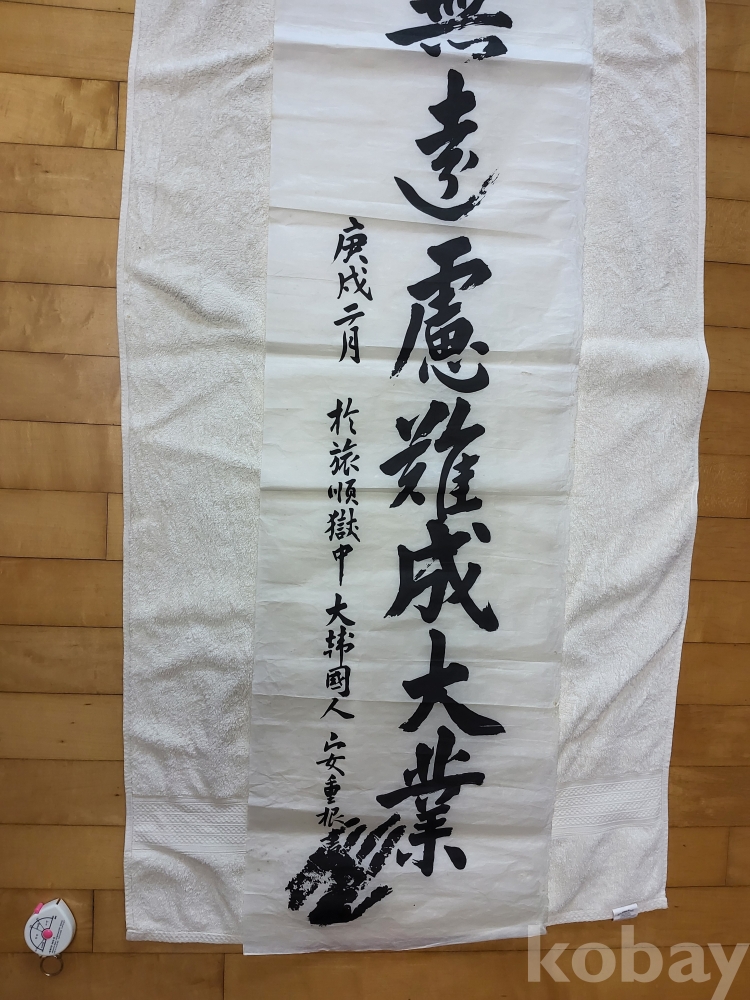 無遠慮難成大業
庚戌二月 於旅順獄中 大韓國人 安重根書
kobay